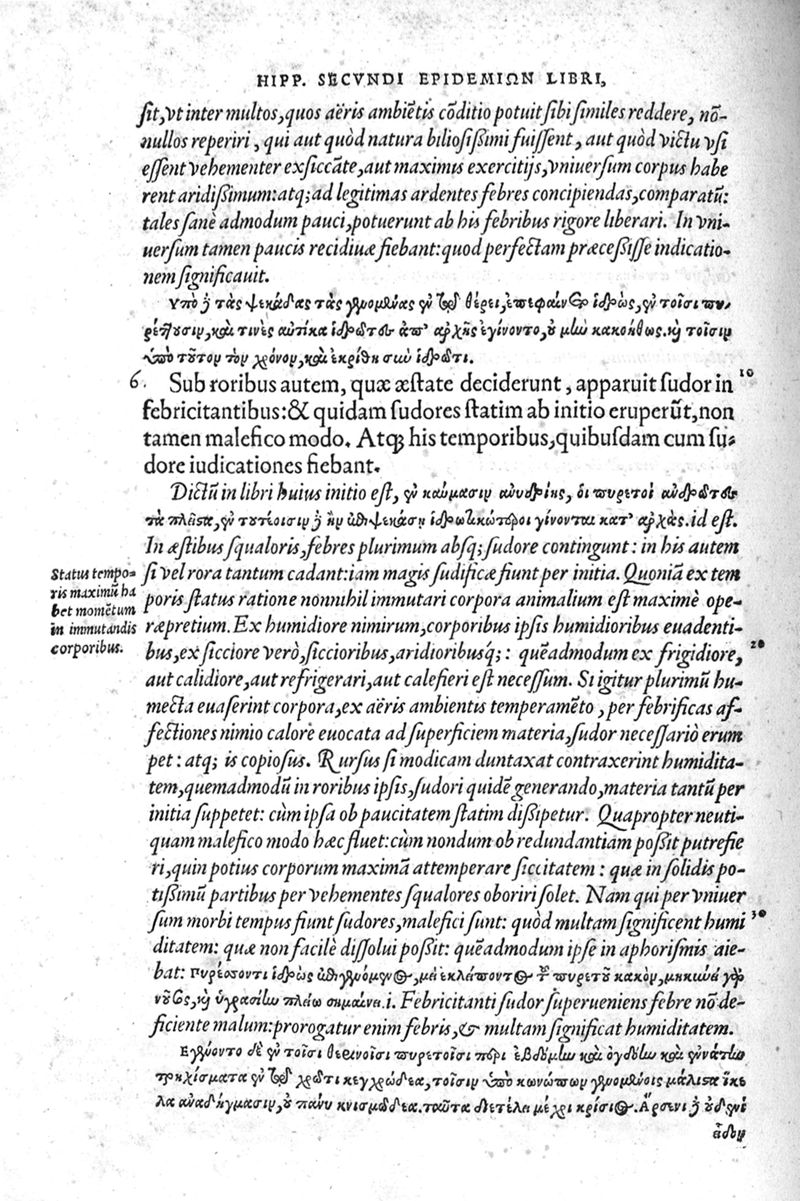 HIPP. SECVNDI EPIDEMIΩN LIBRI,
sit, vt inter multos, quos aëris ambiẽtis cõditio potuit sibi similes reddere, nõ-
nullos reperiri, qui aut quòd natura biliosißimi fuissent, aut quòd victu vsi
essent vehementer exsiccãte, aut maximis exercitijs, vniuersum corpus habe
rent aridißimum: atq; ad legitimas ardentes febres concipiendas, comparatũ:
tales sanè admodum pauci, potuerunt ab his febribus rigore liberari. In vni-
uersum tamen paucis recidiuæ fiebant: quod perfectam præceßisse indicatio-
nem significauit.
Υπὸ δὲ τὰς ψεκάδας τὰς γενομένας ἐν τῷ θέρει, ἐπεφαίνετο ἱδρὼς, ἐν τοῖσι πυ-
ρέτουσιν, καὶ τινὲς αὐτίκα ἱδρῶτες ἀπ' ἀρχῆς ἐγίνοντο, οὐ μὴν κακοήθως. καὶ τοῖσιν
ὑπὸ τοῦτον τὸν χρόνον, καὶ ἐκρίθη σὺν ἱδρῶτι.
6. Sub roribus autem, quæ æstate deciderunt, apparuit sudor in 10
febricitantibus: & quidam sudores statim ab initio eruperũt, non
tamen malefico modo. Atq; his temporibus, quibusdam cum su-
dore iudicationes fiebant.
Dictũ in libri huius initio est, ἐν καύμασιν ἀνυδρίης, οἱ πυρετοὶ ἀνίδρωτες
τὰ πλεῖστα, ἐν τουτέοισιν δὲ ἢν ἐπιψεκάσῃ ἱδρωτικώτεροι γίνονται κατ' ἀρχάς. id est.
In æstibus squaloris, febres plurimum absq; sudore contingunt: in his autem
Status tempo-
ris maximũ ha
bet momẽtum
in immutandis
corporibus.
si vel rora tantum cadant: iam magis sudificæ fiunt per initia. Quoniã ex tem
poris status ratione nonnihil immutari corpora animalium est maximè ope-
ræpretium. Ex humidiore nimirum, corporibus ipsis humidioribus euadenti-
bus, ex sicciore verò, siccioribus, aridioribusq;: quẽadmodum ex frigidiore, 20
aut calidiore, aut refrigerari, aut calefieri est necessum. Si igitur plurimũ hu-
mecta euaserint corpora, ex aëris ambientis temperamẽto, per febrificas af-
fectiones nimio calore euocata ad superficiem materia, sudor necessariò erum
pet: atq; is copiosus. Rursus si modicam duntaxat contraxerint humidita-
tem, quemadmodũ in roribus ipsis, sudori quidẽ generando, materia tantũ per
initia suppetet: cùm ipsa ob paucitatem statim dißipetur. Quapropter neuti-
quam malefico modo hæc fluet: cùm nondum ob redundantiam poßit putrefie
ri, quin potius corporum maximã attemperare siccitatem: quæ in solidis po-
tißimũ partibus per vehementes squalores oboriri solet. Nam qui per vniuer
sum morbi tempus fiunt sudores, malefici sunt: quòd multam significent humi 30
ditatem: quæ non facilè dissolui poßit: quẽadmodum ipse in aphorismis aie-
bat: Πυρέσσοντι ἱδρὼς ἐπιγενόμενος, μὴ ἐκλείποντος τοῦ πυρετοῦ κακόν, μηκύνει γὰρ
νοῦσος, καὶ ὑγρασίην πλείω σημαίνει. i. Febricitanti sudor superueniens febre nõ de-
ficiente malum: prorogatur enim febris, & multam significat humiditatem.
Εγένοντο δὲ ἐν τοῖσι θερινοῖσι πυρετοῖσι περὶ ἑβδόμην καὶ ὀγδόην καὶ ἐννάτην
τρηχίσματα ἐν τῷ χρωτὶ κεγχρώδεα, τοῖσιν ὑπὸ κωνώπων γενομένοις μάλιστα ἴκε
λα ἀναδήγμασιν, οὐ πάνυ κνισμώδεα. ταῦτα διετέλει μέχρι κρίσιος. Ἄρσενι δὲ οὐδενὶ
εἶδον